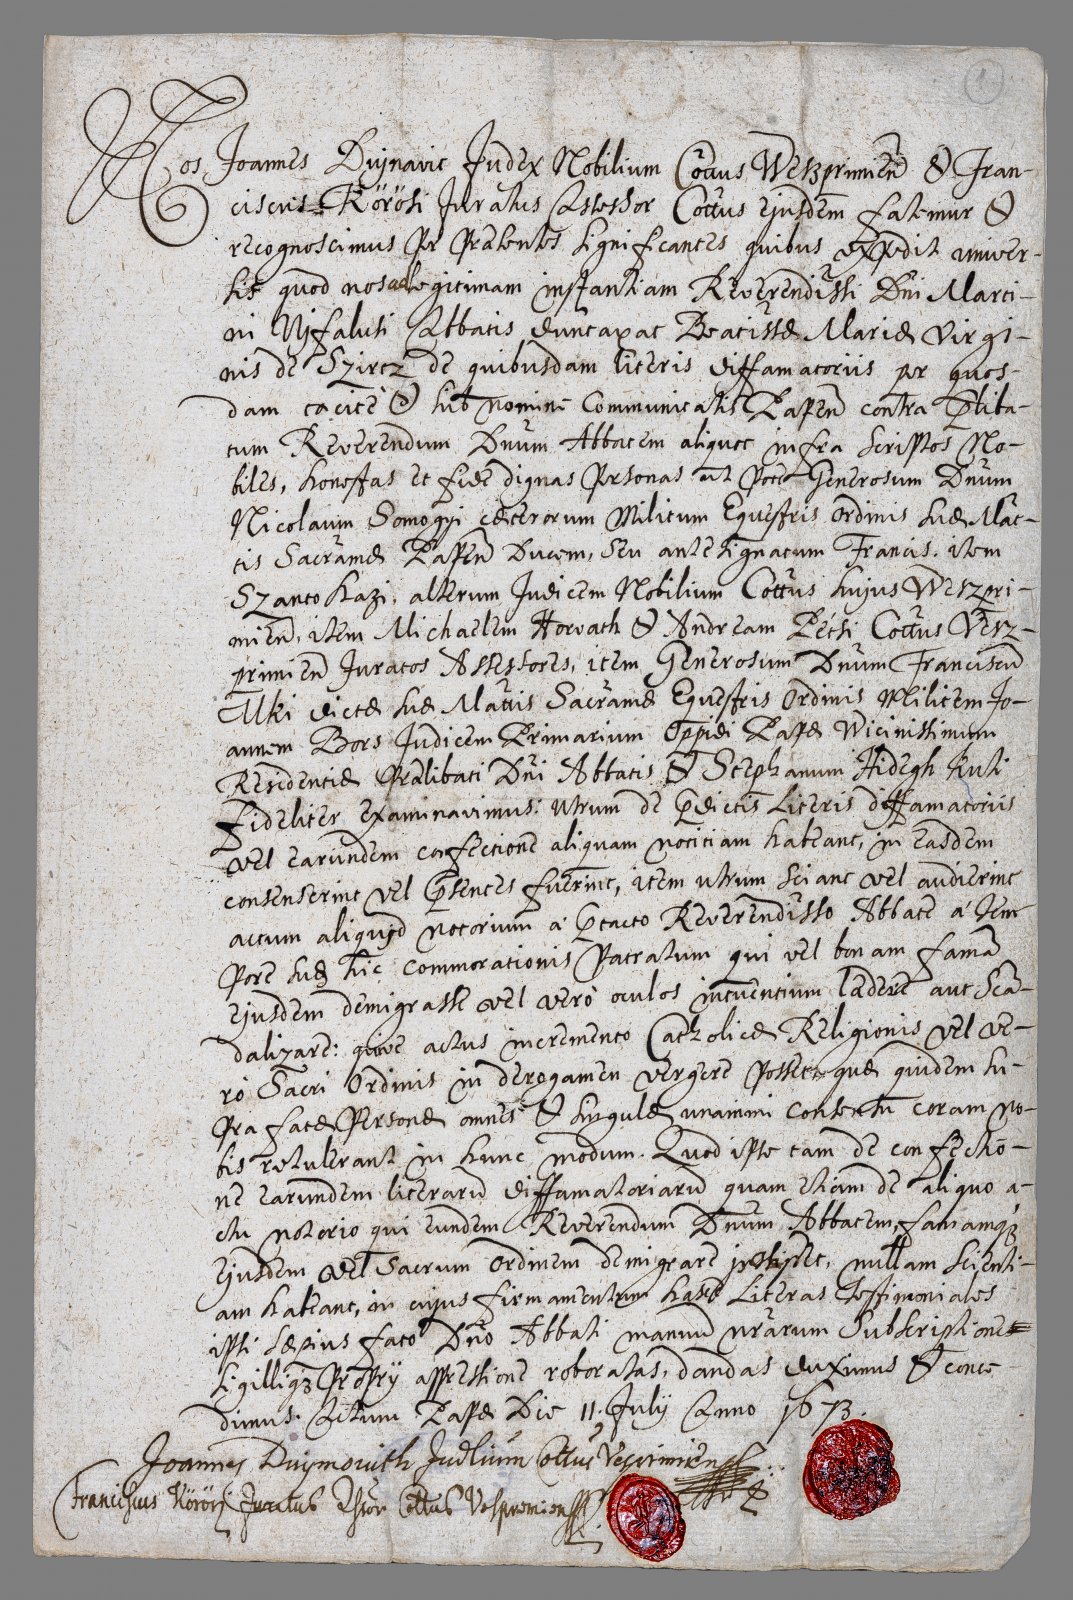 1
Nos Joannes Dujnavit Judex Nobilium Cottus Weszprimien̄ & Fran-
ciscus Körösi Juratus Assessor Cottus ejusdem fatemur &
recognoscimus per praesentes significantes quibus expedit univer-
sis quod nos ad legitimam instantiam Reverendissi Dn̄i Marti-
ni Ujfalusi Abbatis Beatissae Mariae Virgi-
nis de Szircz de quibusdam literis diffamatoriis per quos-
dam tacitè & sub nomine Communitatis Papen̄ contra p̄liba-
tum Reverendum Dn̄um Abbatem aliquot infra scriptos No-
biles, honestas et fide dignas personas ut pote Generosum Dn̄um
Nicolaum Somogyi ceterorum Militum Equestris Ordinis suae Mat-
tis Sacramae Papen̄ Ducem, seu antesignatum Francis. item
Szanto hazi, alterum Judicem Nobilium Cottus hujus Weszpri-
mien̄, item Michaelem Horvath & Andream Pécsi Cottus Vesz-
primien̄ Juratos Assessores, item Generosum Dn̄um Franciscū
Uki dictae suae Mattis Sacramae Equestris Ordinis Militem Jo-
annem Bors Judicem Primarium Oppidi Papae Wicinissimum
Residentiae praelibati Dn̄i Abbatis & Stephanum Hidegh Kuti
fideliter examinavimus: utrum de p̄dictis Literis diffamatoriis
vel earundem confectione aliquam notitiam habeant, in easdem
consenserint vel p̄sentes fuerint, item utrum sciant vel audierint
actum aliquod notorium à p̄tacto Reverendisso Abbate à tem-
pore suae hic commorationis patratum qui vel bonam famā
ejusdem demigrasse vel verò oculos intuentium laedere aut Scā-
dalizare: quive actus incremento Catholicae Religionis vel ve-
rò Sacri Ordinis in derogamen vergere posset, quae quidem su-
pra fatae Personae omnes & singulae unanimi consensu coram no-
bis retulerant in hunc modum. Quod ipse tam de confectio-
ne earundem literarū diffamatoriarū quam etiam de aliquo a-
ctu notorio qui eundem Reverendum Dn̄um Abbatem, famamq3
ejusdem vel Sacrum Ordinem demigrare nullam scienti-
am habeant, in cujus firmamentum hasce Literas Testimoniales
ipsi saepius fato Dn̄o Abbati manuū nr̄arum Subscriptione
sigilliq3 proprij appressione roboratas, dandas duximus & conce
dimus. Actum Papae Die 11. Julij Anno 1673.
Joannes Dujmovith Judlium Cottus Vesprimiensis
Franciscus Körösi Juratus Assor Cottus Vespremiensis